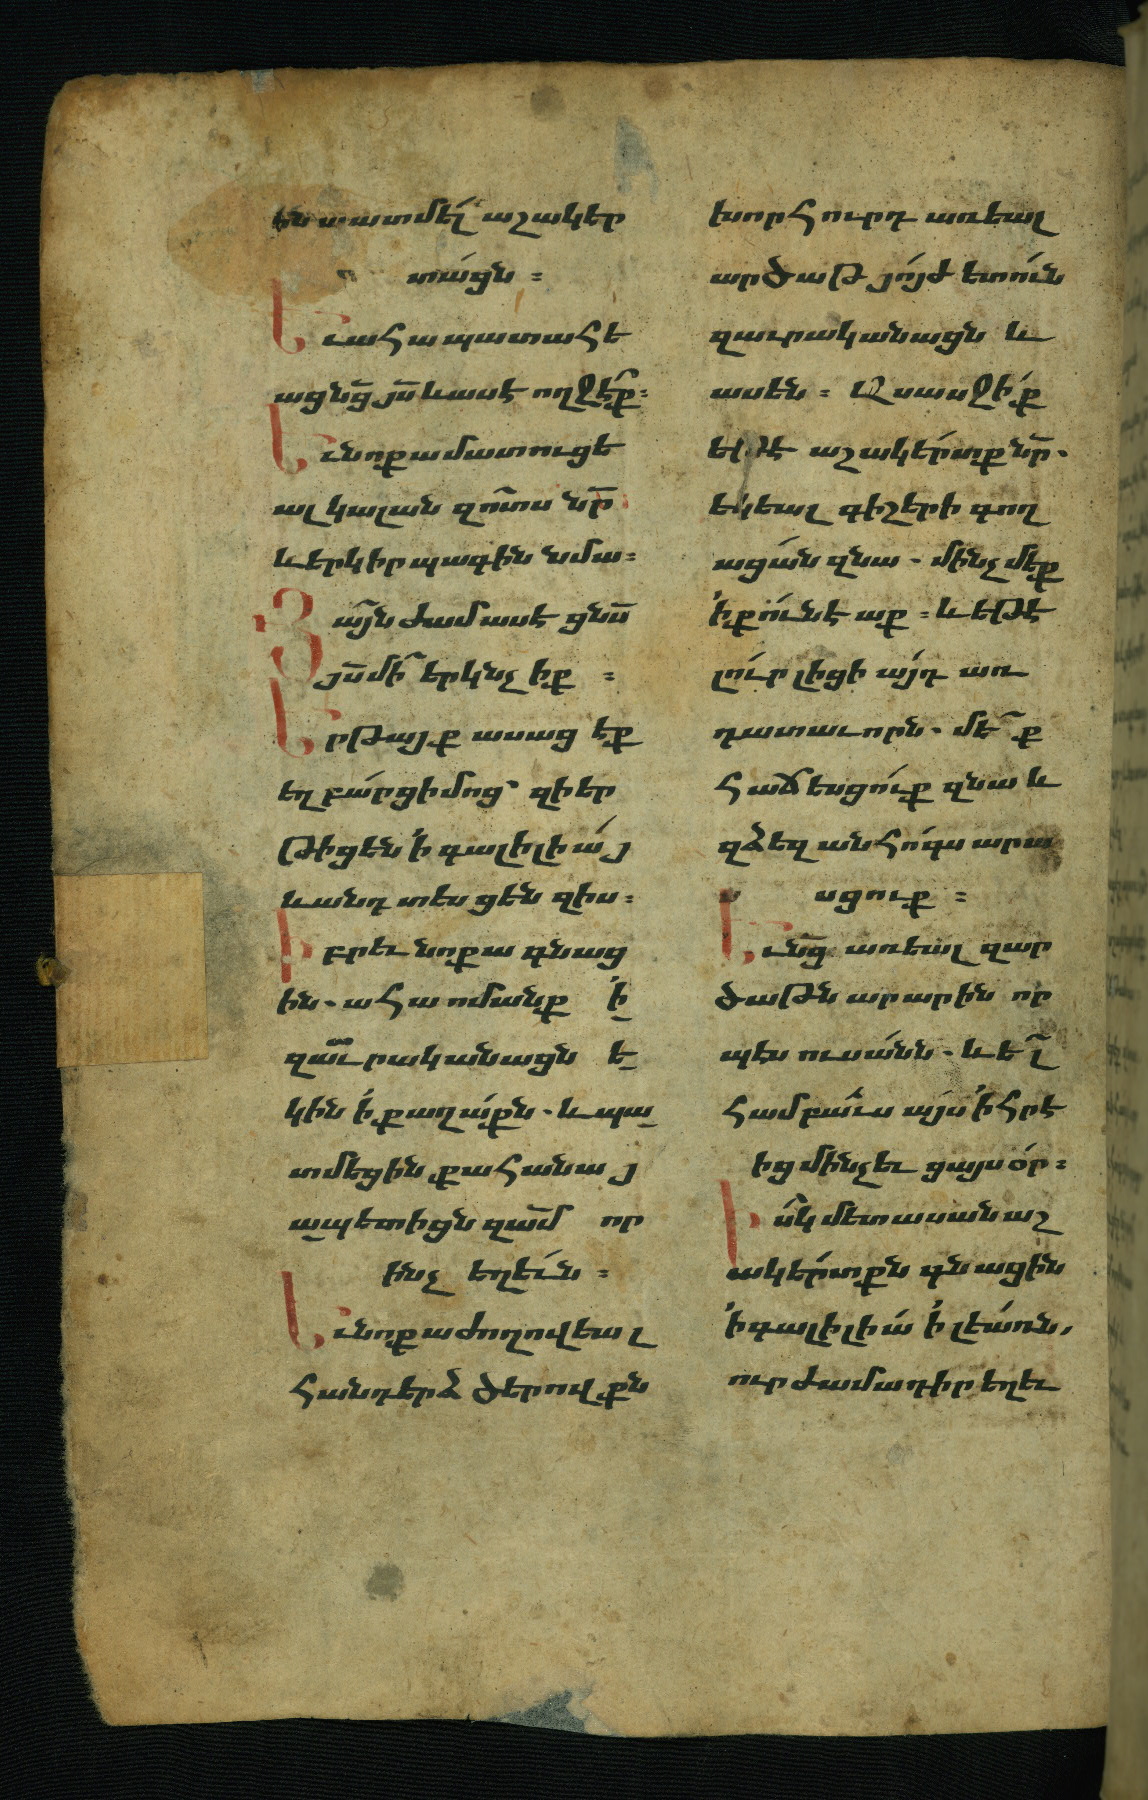 ին պատմել աշակեր
տացն :
Եւ ահա պատահե
աց նց յս և ասէ ողջ եք :
Եւ նոքա մատուցե
ալ կալան զոտս նր
և երկիր պագին նմա :
Յայն ժամ ասէ ցնս
յս մի երկնչիք :
Երթայք ասացէք
եղբարց իմոց զի եր
թիցեն ի գալիլիայ
և անդ տեսցեն զիս :
Իբրեւ նոքա գնաց
ին . ահա ոմանք ի
զաւրականացն ե
կին ի քաղաքն . և պա
տմեցին քահանայ
ապետիցն զամ որ
ինչ եղեւն :
Եւ նոքա ժողովեալ
հանդերձ ծերովքն
խորհուրդ առեալ
արծաթ յոյժ ետուն
զաւրականացն և
ասեն : Ասասջիք
եթէ աշակերտք նր .
եկեալ գիշերի գող
ացան զնա . մինչ մեք
ի քուն էաք : և եթէ
լուր լիցի այդ առ
դատաւորն . մեք
հաճեսցուք զնա և
զձեզ անհոգս արա
սցուք :
Եւ նց առեալ զար
ծաթն արարին որ
պէս ուսանն . և ել
համբաւս այս ի հրէ
ից մինչեւ ցայսօր :
Իսկ մետասան աշ
ակերտքն գնացին
ի գալիլիա ի լեառն ,
ուր ժամադիր եղեւ